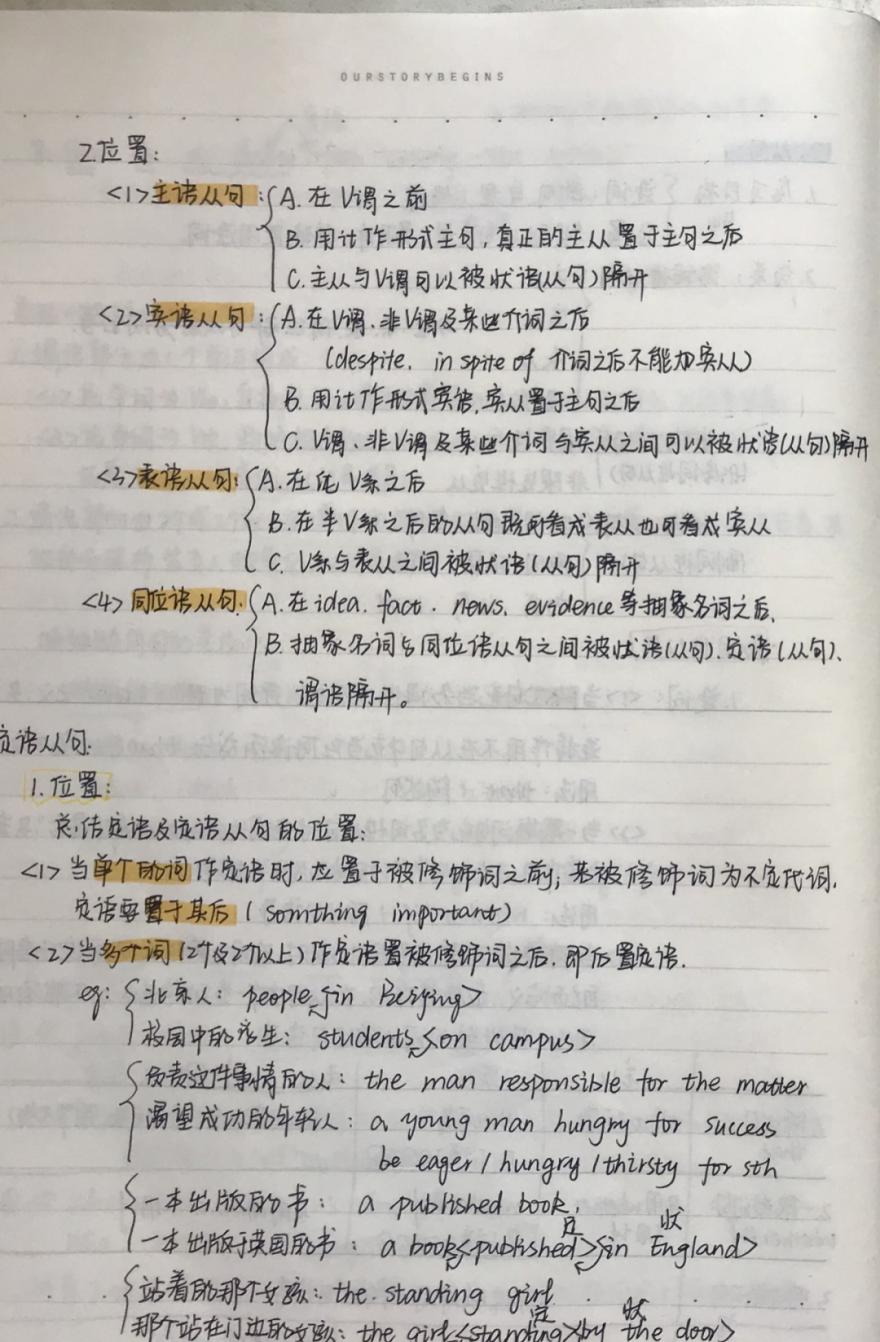 OURSTORYBEGINS
2.位置:
<1>主语从句: A.在V谓之前
B.用it作形式主句,真正的主从置于主句之后
C.主从与V谓可以被状语(从句)隔开
<2>宾语从句: A.在V谓、非V谓及某些介词之后
(despite, in spite of 介词之后不能加宾从)
B.用it作形式宾语,宾从置于主句之后
C.V谓、非V谓及某些介词与宾从之间可以被状语(从句)隔开
<3>表语从句: A.在纯V系之后
B.在半V系之后的从句既可看成表从也可看成宾从
C.V系与表从之间被状语(从句)隔开
<4>同位语从句: A.在idea. fact. news. evidence等抽象名词之后.
B.抽象名词与同位语从句之间被状语(从句)、定语(从句)、
谓语隔开。
定语从句.
1.位置:
总结定语及定语从句的位置:
<1>当单个的词作定语时,应置于被修饰词之前;若被修饰词为不定代词,
定语要置于其后(somthing important)
<2>当多个词(2个及2个以上)作定语置被修饰词之后.即后置定语.
eg: 北京人: people <in Beijing>
校园中的学生: students <on campus>
负责这件事情的人: the man responsible for the matter
渴望成功的年轻人: a young man hungry for success
be eager / hungry / thirsty for sth
一本出版的书: a published book.
定 状
一本出版于英国的书: a book <published> <in England>
站着的那个女孩: the standing girl
定 状
那个站在门边的女孩: the girl <standing> <by the door>